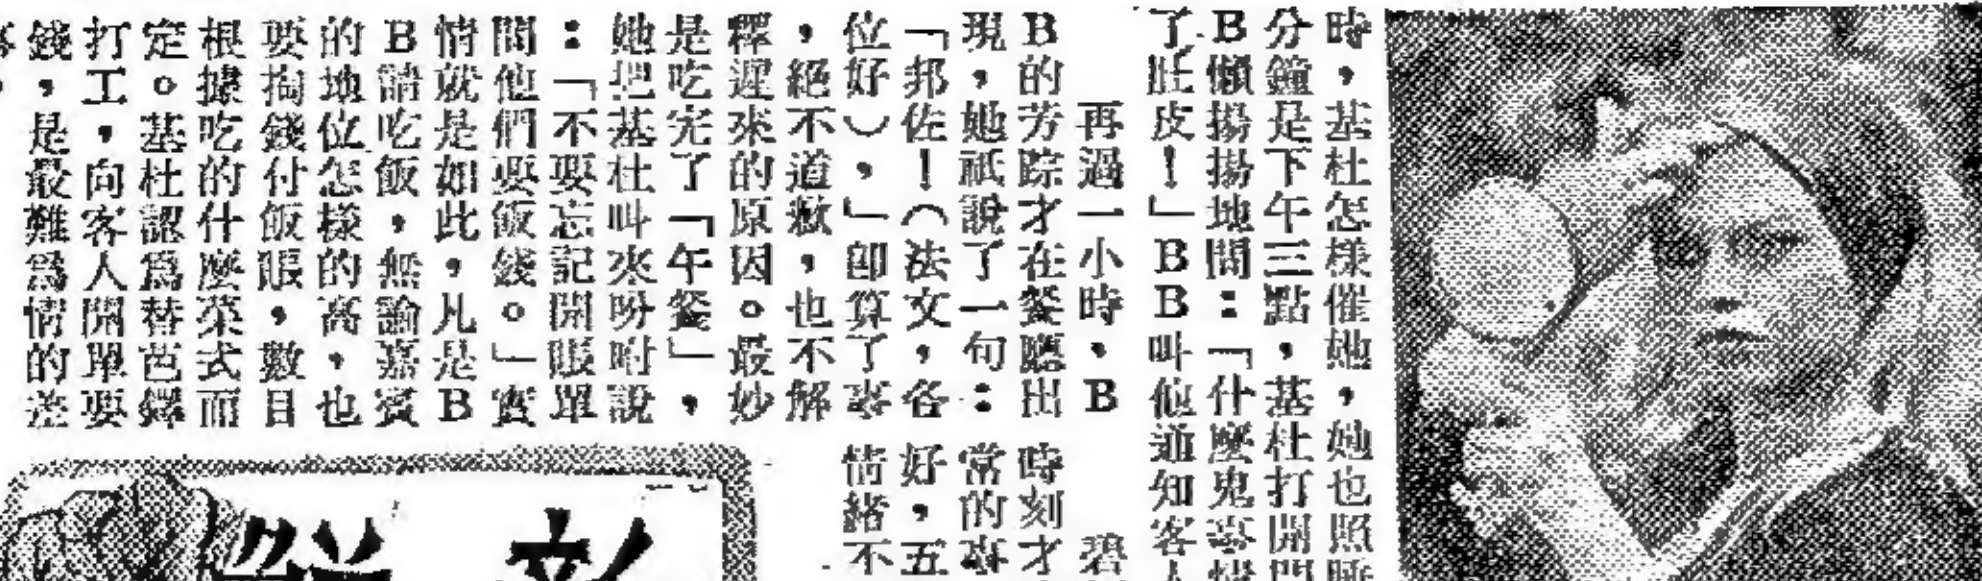 時，基杜怎樣催她，她也照睡
分鐘是下午三點，基杜打開門
B懶揚揚地問：「什麼鬼事情
了肶皮！」BB叫他通知客人
再過一小時，B
B的芳踪才在餐廳出
現，她祇說了一句：
「邦佐！（法文，各
位好），」卽算了事
，絕不道歉，也不解
釋遲來的原因。最妙
是吃完了「午餐」，
她把基杜叫來吩咐說
：「不要忘記開賬單
問他們要飯錢。」實
情就是如此，凡是B
B請吃飯，無論嘉賓
的地位怎樣的高，也
要掏錢付飯賬，數目
根據吃的什麼菜式而
定。基杜認爲替芭鐸
打工，向客人開單要
錢，是最難爲情的差
事。
碧
時刻才
常的事
好，五
情緒不
彭